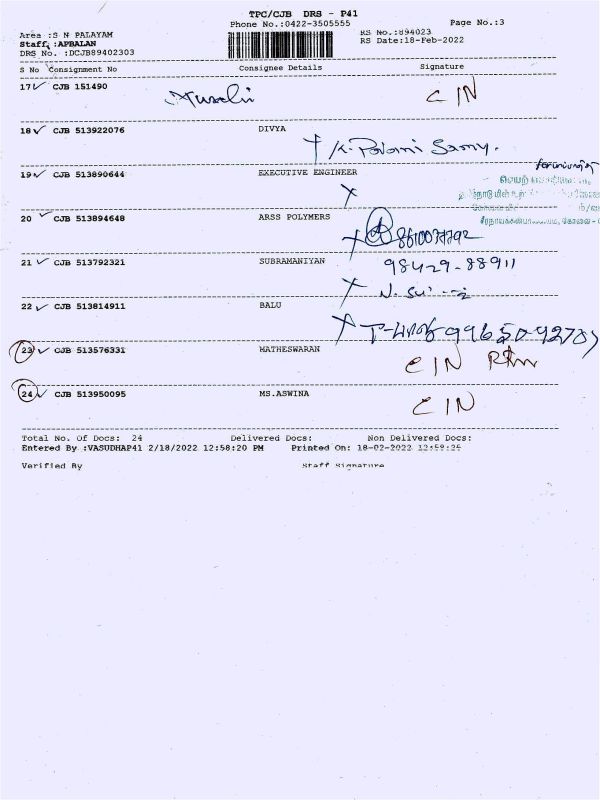 TPC/CJB DRS - P41
Phone No.:0422-3505555
Page No.:3
Area :S N PALAYAM
RS No.:894023
Staff :APBALAN
RS Date:18-Feb-2022
DRS No. :DCJB89402303
S No Consignment No Consignee Details Signature
17 CJB 151490 C IN
18 CJB 513922076 DIVYA
K. Palani Samy.
19 CJB 513890644 EXECUTIVE ENGINEER
20 CJB 513894648 ARSS POLYMERS
21 CJB 513792321 SUBRAMANIYAN 98429-88911
22 CJB 513814911 BALU
23 CJB 513576331 MATHESWARAN
C IN
24 CJB 513950095 MS.ASWINA C IN
Total No. Of Docs: 24 Delivered Docs: Non Delivered Docs:
Entered By :VASUDHAP41 2/18/2022 12:58:20 PM Printed On: 18-02-2022 12:59:26
Verified By Staff Signature